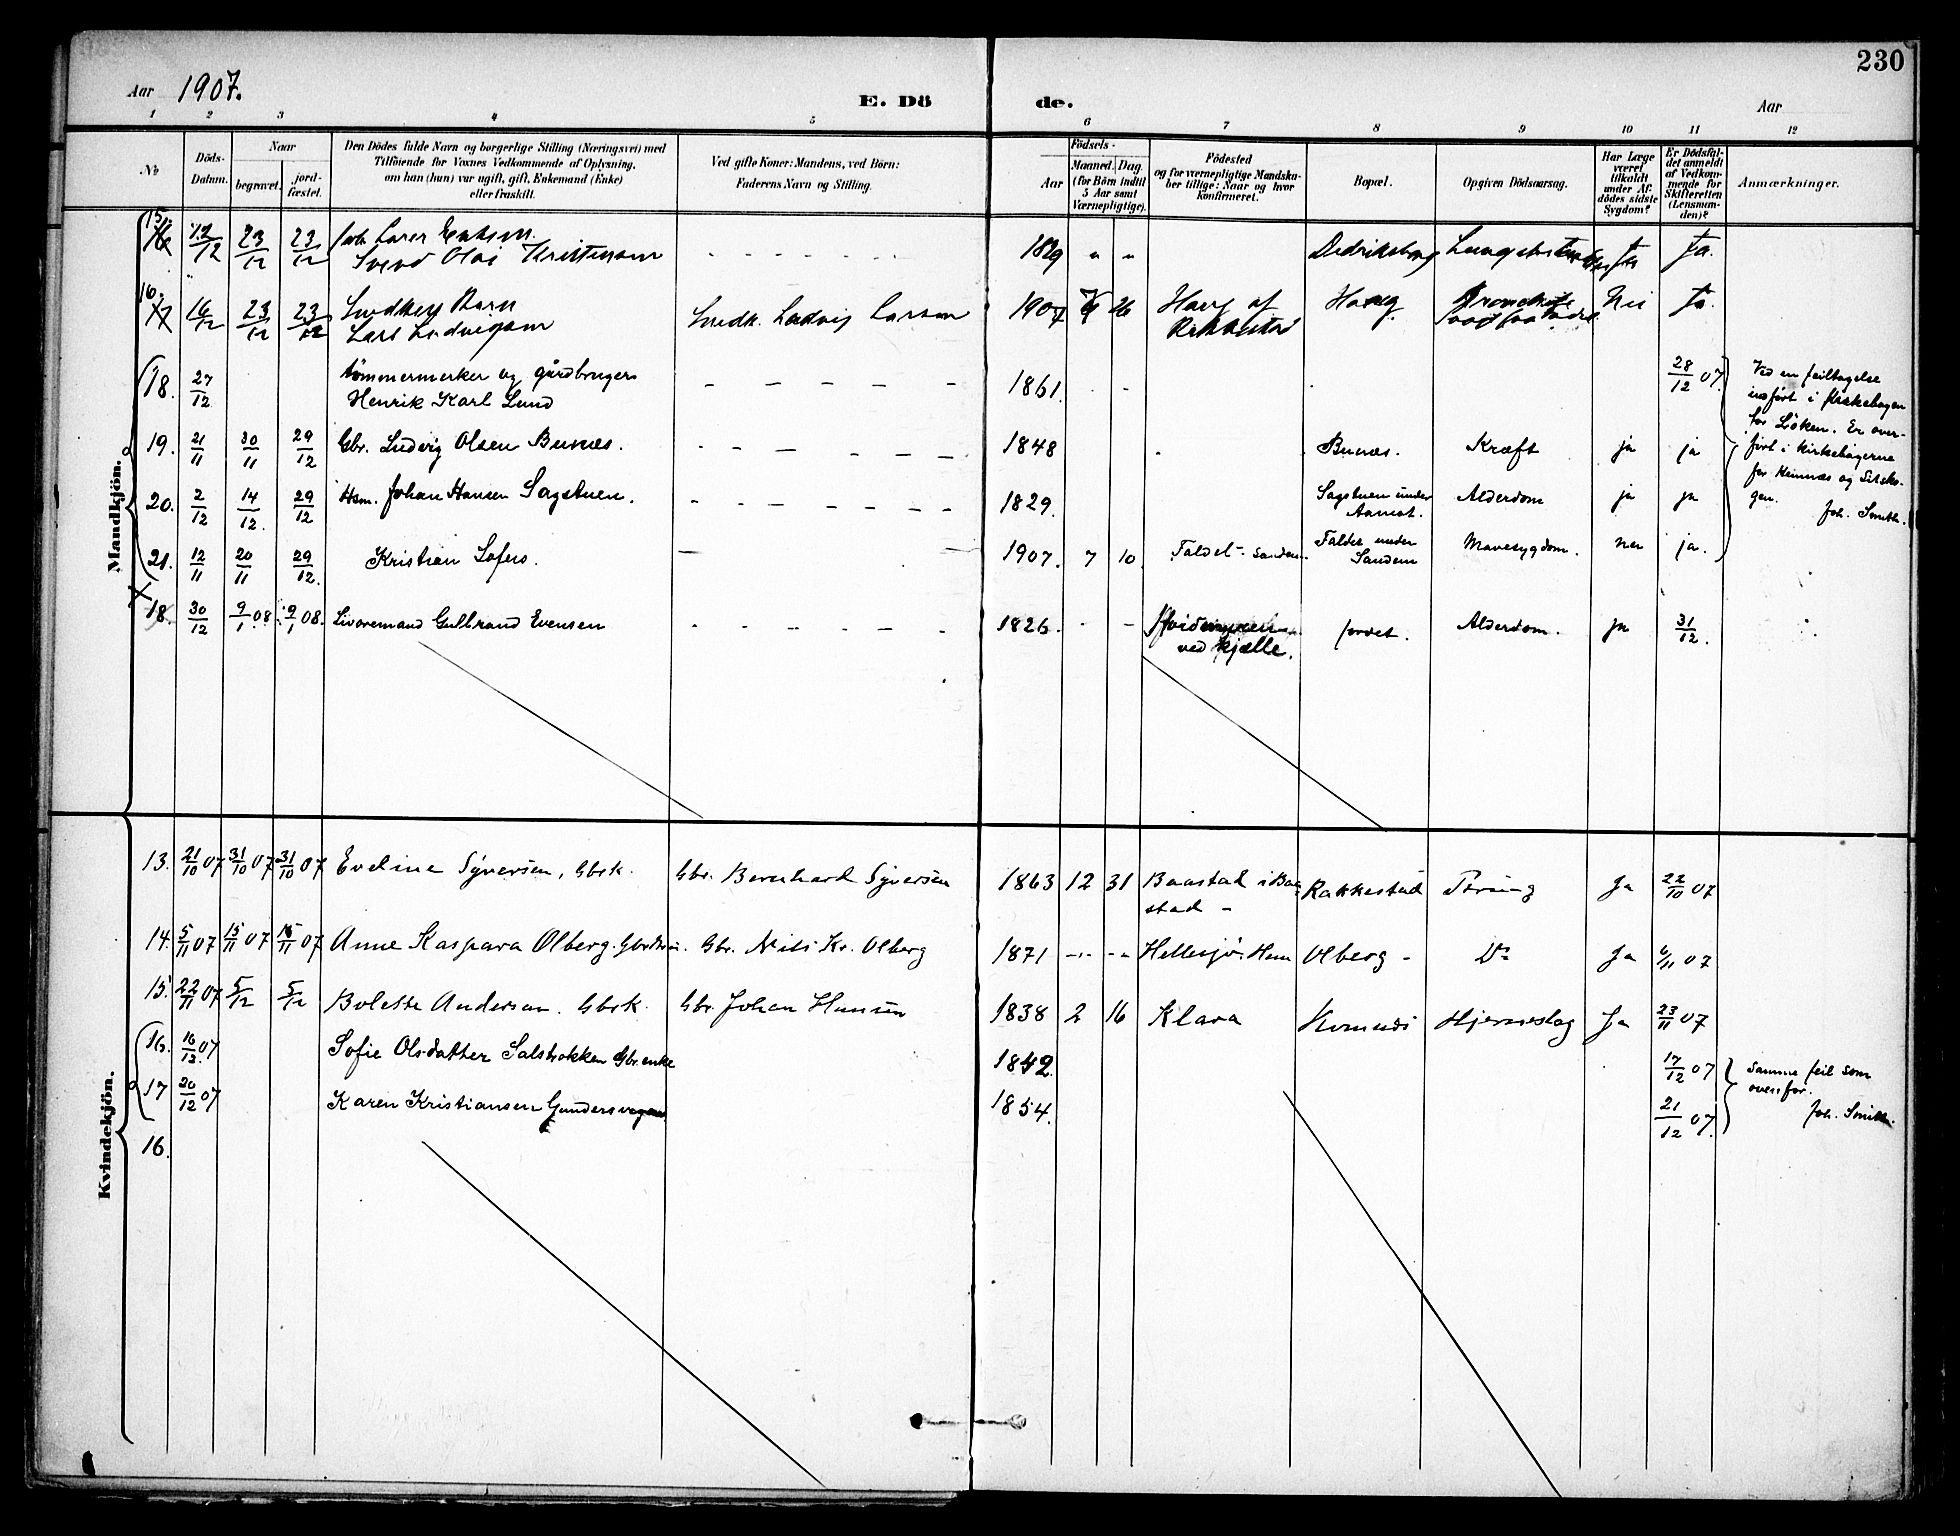 230
Aar 1907.
E. Dö
de.
Aar
1 2 3 4 5 6 7 8 9 10 11 12
No
Döds-
Datum.
Naar
begravet.
jord-
fæstet.
Den Dödes fulde Navn og borgerlige Stilling (Næringsvei) med
Tilföiende for Voxnes Vedkommende af Oplysning,
om han (hun) var ugift, gift, Enkemand (Enke)
eller fraskilt.
Ved gifte Koner: Mandens, ved Börn:
Faderens Navn og Stilling.
Födsels-
Aar
Maaned. Dag.
(for Börn indtil
5 Aar samt
Værnepligtige).
Födested
og for værnepligtige Mandska-
ber tillige: Naar og hvor
konfirmeret.
Bopæl.
Opgiven Dödsaarsag.
Har Læge
været
tilkaldt
under Af-
dödes sidste
Sygdom?
Er Dödsfal-
det anmeldt
af Vedkom-
mende for
Skifteretten
(Lensman-
den)?
Anmærkninger.
Mandkjön.
15. 12/12 23/12 23/12
Svend Olai Kristiansen 1829 " " Ja Ja.
16. 16/12 23/12 23/12 Barn
Lars Ludvigsen Ludvig Larsen 1907 26 Haug af Haug Bronchite Nei Ja.
18. 27/12 tömmermerker og gårdbruger
Henrik Karl Lund 1861. 28/12 07.
19. 21/11 30/11 29/12 Gbr. Ludvig Olsen Bunæs. 1848 Bunæs. Kræft ja ja
20. 2/12 14/12. 29/12 Hsm. Johan Hansen Sagstuen. 1829. Sagstuen under
Aamot. Alderdom ja ja
21. 12/11 20/11 29/12. Kristian Lofers. 1907. 7 10. Faldet - Sandem Faldet under
Sandem Mavesygdom. nei ja.
Ved en feiltagelse
indfört i Kirkebogen
for Löken. Er over-
fört i Kirkebögerne
for Hemnæs og Setsko-
gen.
Joh. Smith.
X 18. 30/12 9/1 08. 9/1 08. Livöremand Gulbrand Evensen 1826. ved Kjælle. fordet. Alderdom. ja 31/12.
Kvindekjön.
13. 21/10 07 31/10 07 31/10 07 Eveline Syversen, Gbrk. Gbr. Bernhard Syversen 1863 12 31 Baastad i Baa-
stad - Rakkestad Tæring Ja 22/10 07
14. 5/11 07 15/11 07 15/11 07 Anne Kaspara Olberg. Gbr. Nils Kr. Olberg 1871 Hellesjö. Hem Olberg - Do Ja 6/11 07
15. 22/11 07 5/12 5/12 Bolette Andersen. Gbrk. Gbr. Johan Hansen 1838 2 16 Klara Hjerneslag Ja 23/11 07
16. 16/12. 07 Sofie Olsdatter Gbr.enke 1842. 17/12 07
17 20/12 07 Karen Kristiansen 1854. 21/12 07.
Samme feil som
ovenfor.
Joh. Smith.
16.